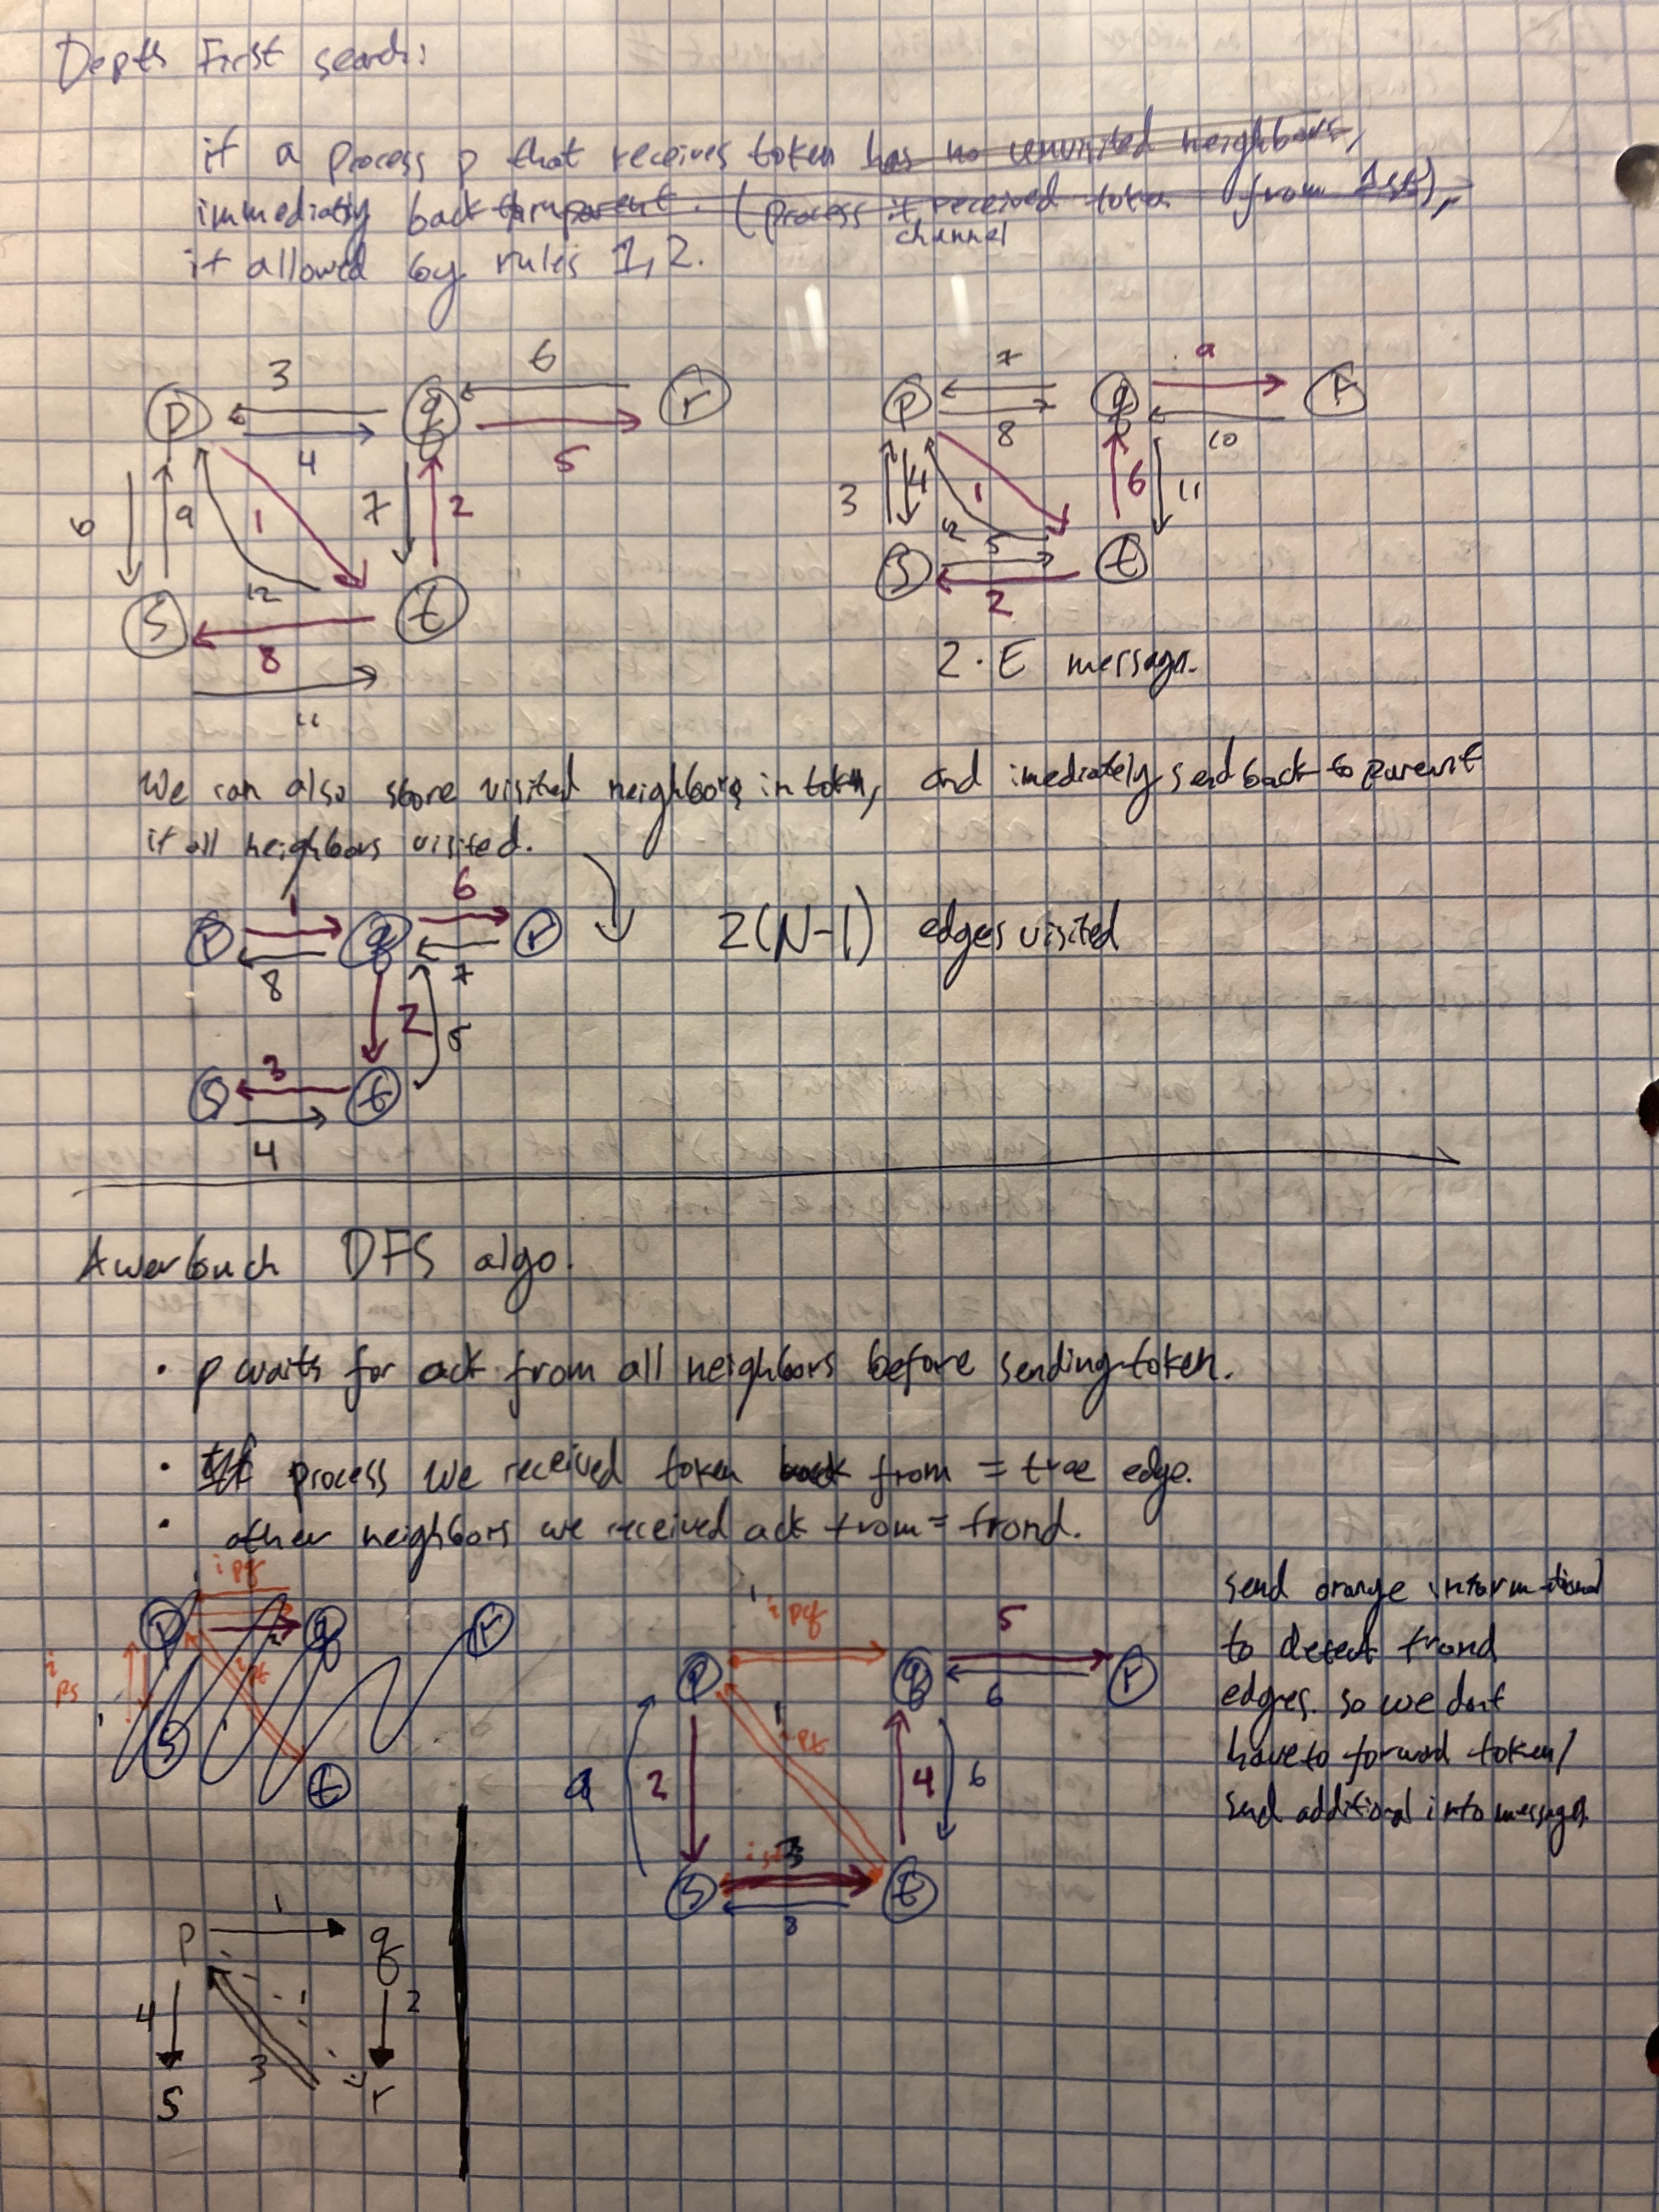 Depth First search:
if a process p that receives token has no unvisited neighbors,
immediatly back parent. (process it received token from 1st),
channel
if allowed by rules 1,2.
3 6 7 9
p q r p q r
4 5 8 10
6 9 1 7 2 3 4 1 6 11
12 12 5
s t s t
8 2
11 2·E messages.
We can also store visited neighbors in token, and imediately send back to parent
if all neighbors visited.
1 6
p q r 2(N-1) edges visited
8 7
2 5
3
s t
4
Awerbuch DFS algo.
• p waits for ack from all neighbors before sending token.
• process we received token from = tree edge.
• other neighbors we received ack from = frond.
i pq
p q r
i ps i pt
s
t
i pq 5
p q r
6
i pt
9 2 4 6
i st 3
s t
8
send orange informational
to detect frond
edges. so we dont
have to forward token/
send additional info messages.
1
p q
4 1 2
3
s r